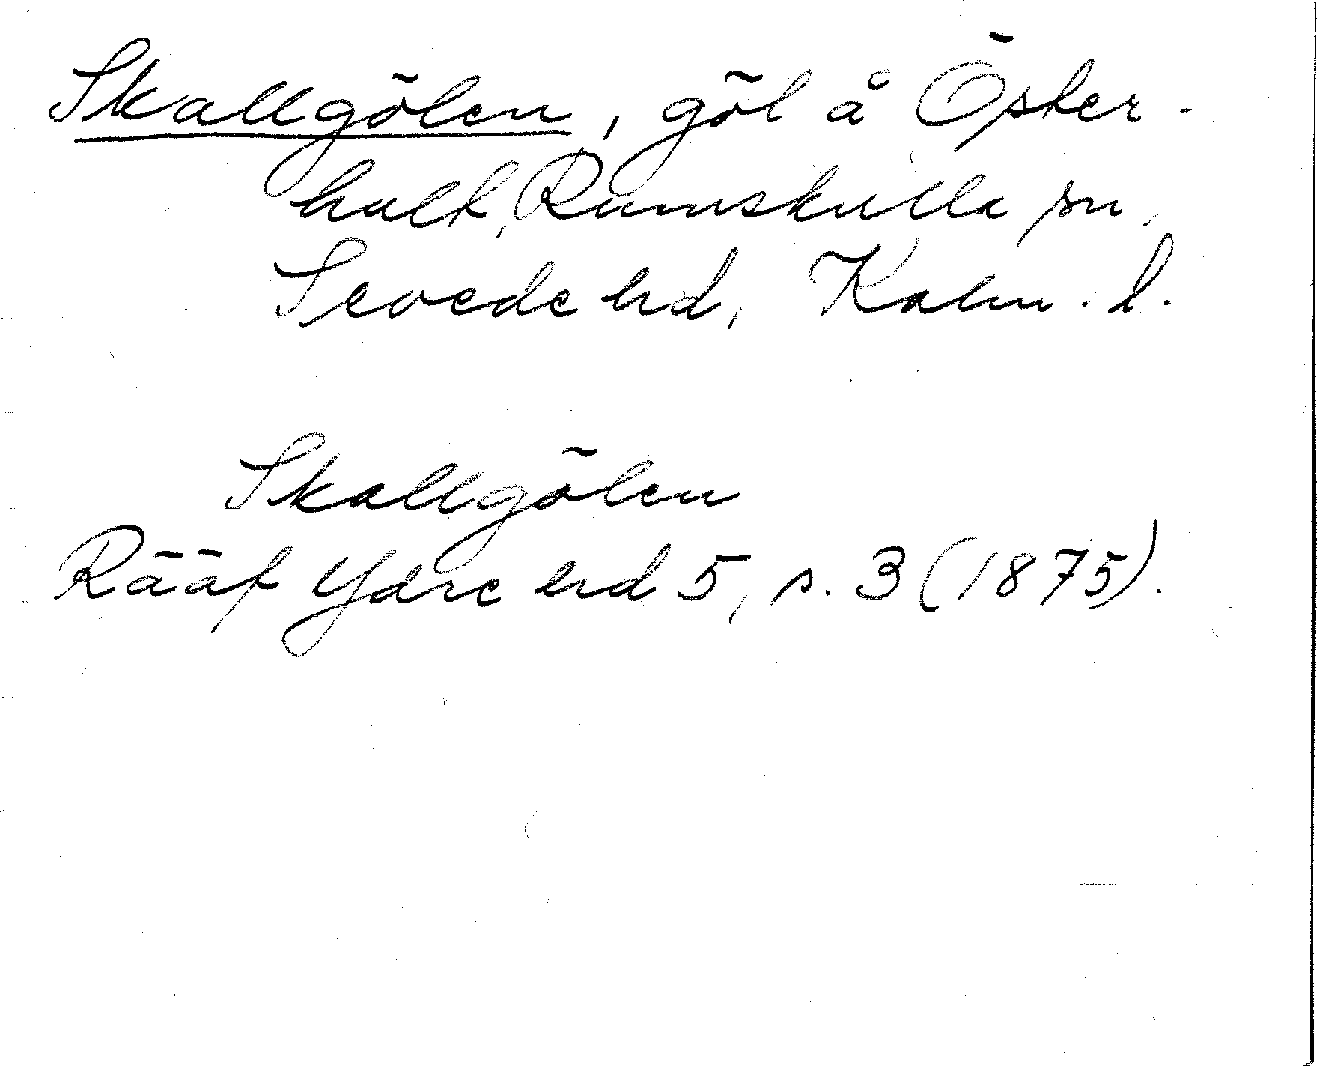 Skallgölen, göl å Öster-
hult, Rumskulla sn,
Sevede hd, Kalm. l.
Skallgölen
Rääf Ydre hd 5, s. 3 (1875).